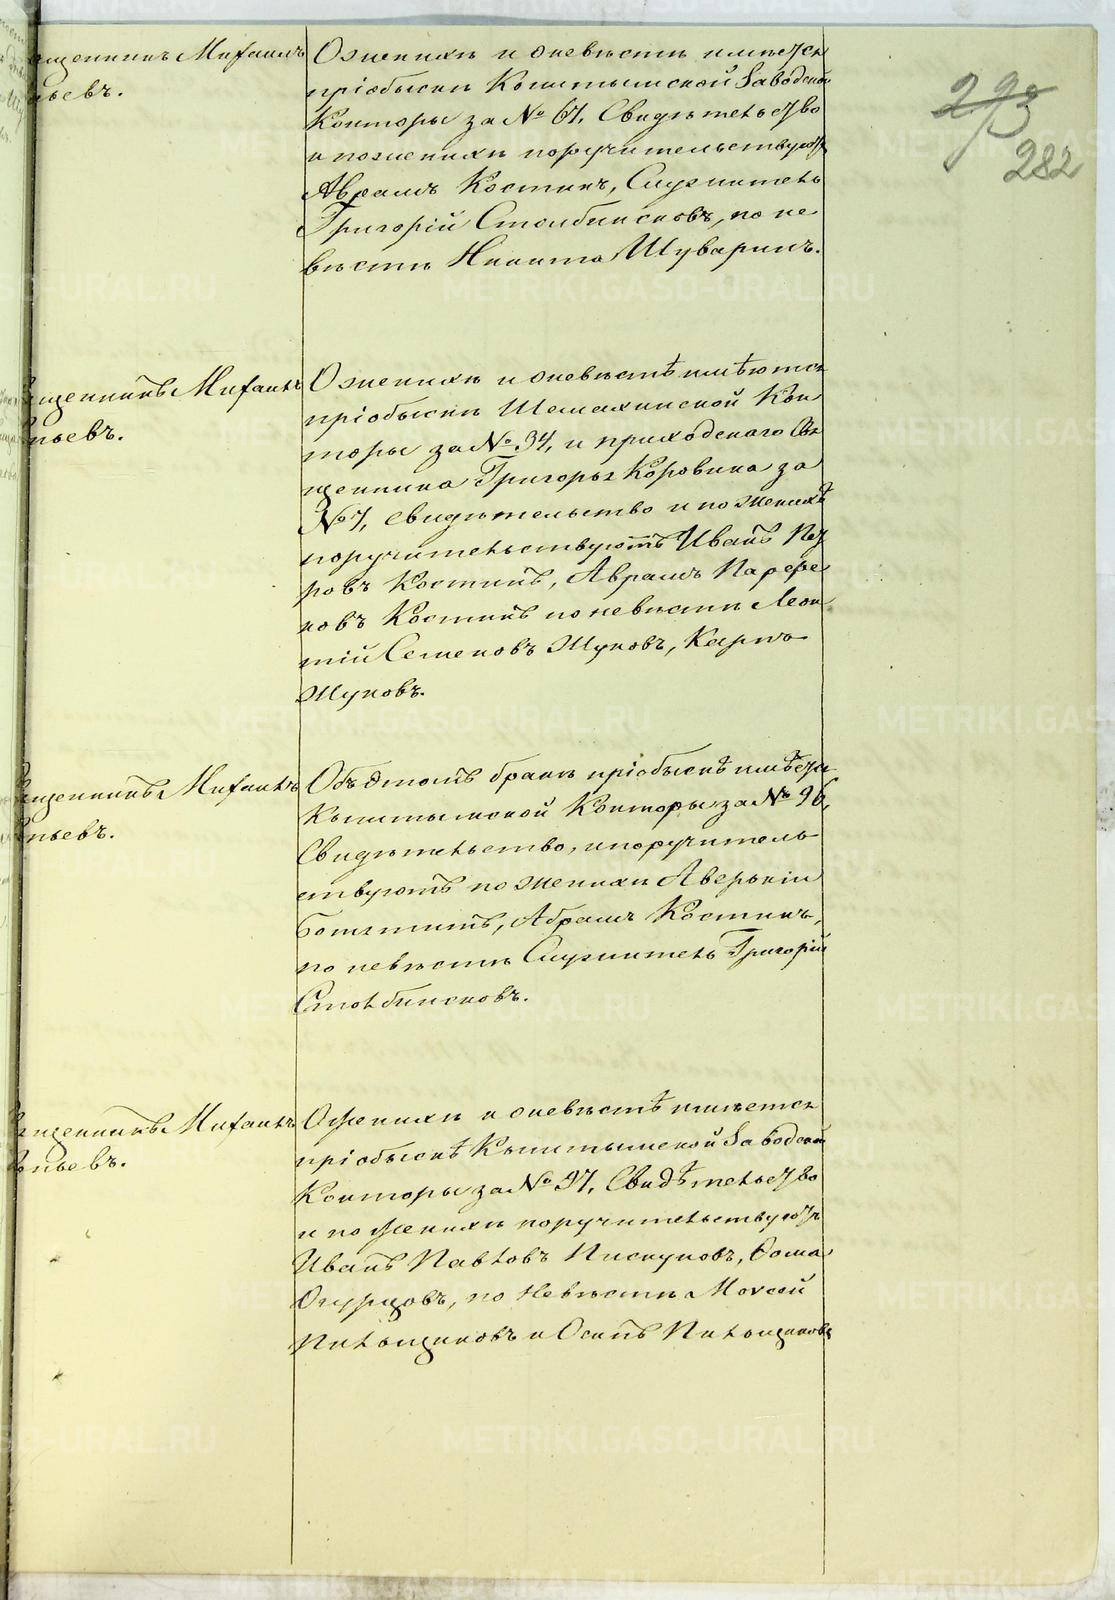 293
282
ященникъ Михаилъ
ньевъ.
О женихѣ и о невѣстѣ имѣется
при обыскѣ Кыштымской Заводской
Конторы за № 67, Свидѣтельство
и по женихѣ поручительствуютъ
Аврамъ Костинъ, Служитель
Григорій Столбинсковъ, по не
вѣстѣ Никита Шуваринъ.
ященникъ Михаилъ
ньевъ.
О женихѣ и о невѣстѣ имѣются
при обыскѣ Шемахинской Кон
торы за № 34, и приходскаго Свя
щенника Григорья Коровина за
№ 7, свидѣтельство и по женихѣ
поручительствуютъ Иванъ Пет
ровъ Костинъ, Аврамъ Парфе
новъ Костинъ по невѣстѣ Леон
тій Семеновъ Жуковъ, Карпъ
Жуковъ.
ященникъ Михаилъ
ньевъ.
Объ этомъ бракѣ при обыскѣ имѣется
Кыштымской Конторы за № 96,
Свидѣтельство, и поручитель
ствуютъ по женихѣ Аверькій
Аврамъ Костинъ,
по невѣстѣ Служитель Григорій
Столбинсковъ.
ященникъ Михаилъ
ньевъ.
О женихѣ и о невѣстѣ имѣется
при обыскѣ Кыштымской Заводской
Конторы за № 97, Свидѣтельство
и по женихѣ поручительствуютъ
Иванъ Павловъ Пискуновъ, Ѳома
Огурцовъ, по невѣстѣ Моксей
Пильщиковъ и Осипъ Пильщиковъ
METRIKI.GASO-URAL.RU